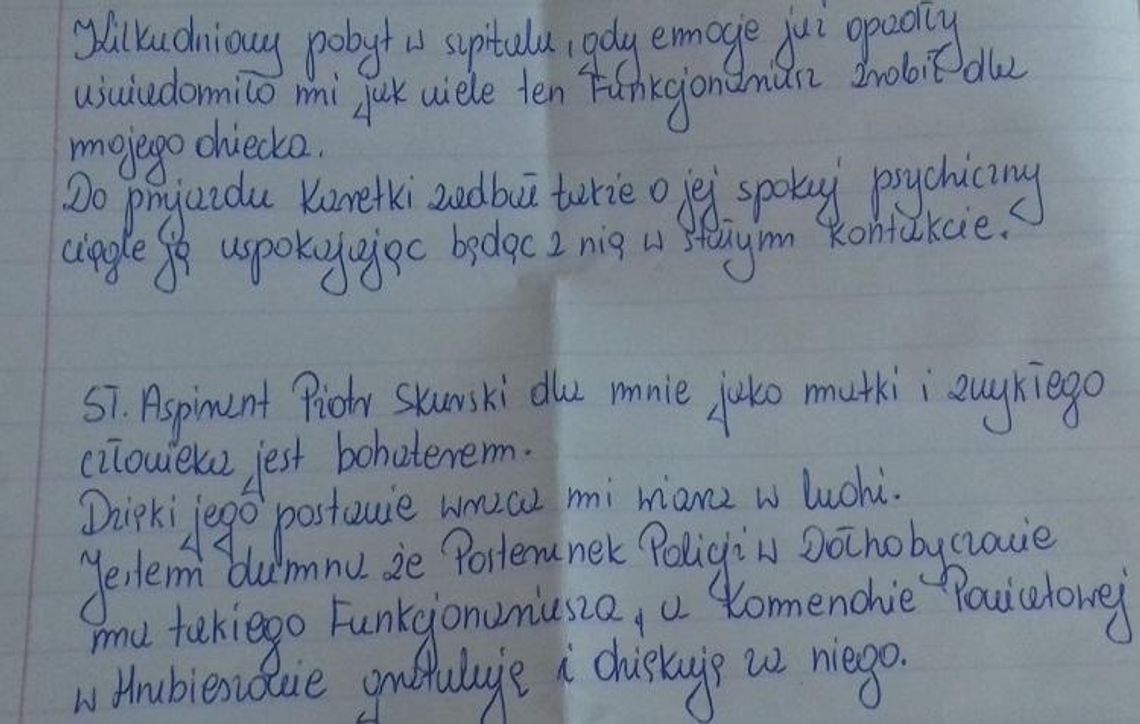 Kilkudniowy pobyt w szpitalu, gdy emocje już opadły
uświadomiło mi jak wiele ten Funkcjonariusz zrobił dla
mojego dziecka.
Do przyjazdu Karetki zadbał także o jej spokój psychiczny
ciągle ją uspokajając będąc z nią w stałym kontakcie.
ST. Aspirant Piotr Skurski dla mnie jako matki i zwykłego
człowieka jest bohaterem.
Dzięki jego postawie wraca mi wiara w ludzi.
Jestem dumna że Posterunek Policji w Dołhobyczowie
ma takiego Funkcjonariusza, a Komendzie Powiatowej
w Hrubieszowie gratuluję i dziękuję za niego.